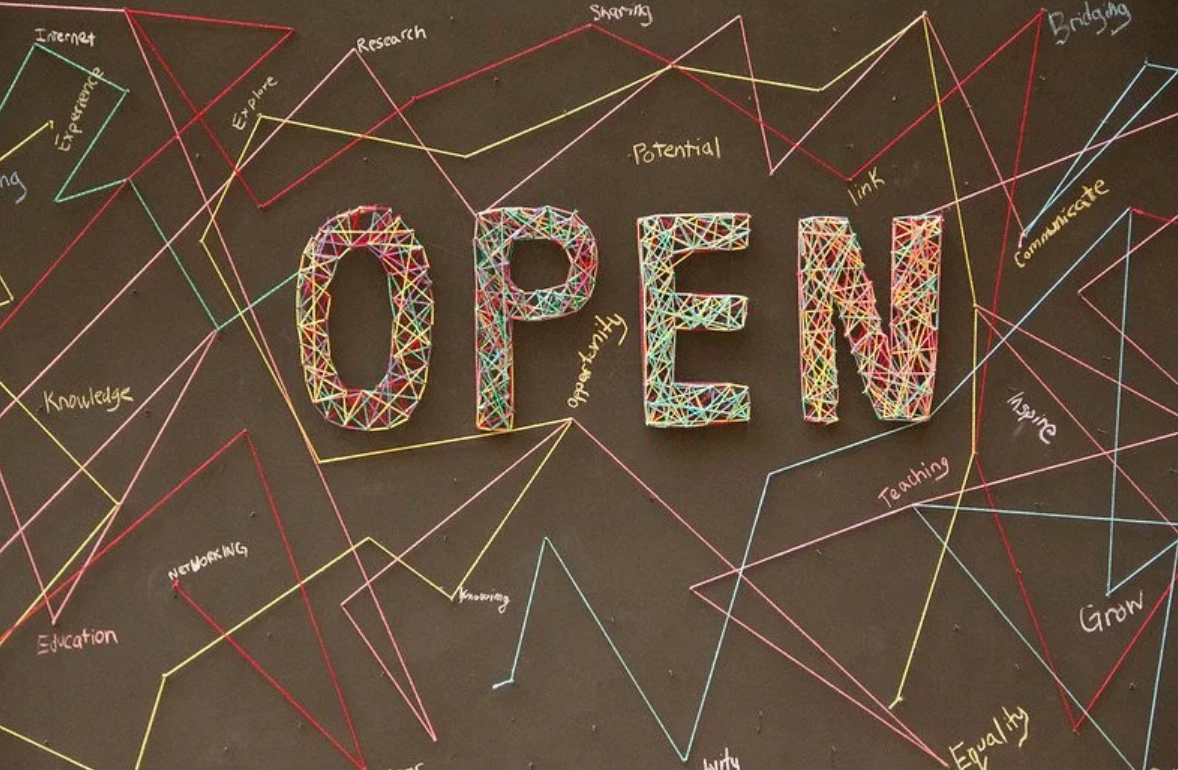 Internet
Research
Sharing
Bridging
Experience
Explore
Potential
link
Communicate
OPEN
opportunity
Knowledge
Inspire
Teaching
NETWORKING
Knowing
Education
Grow
Equality